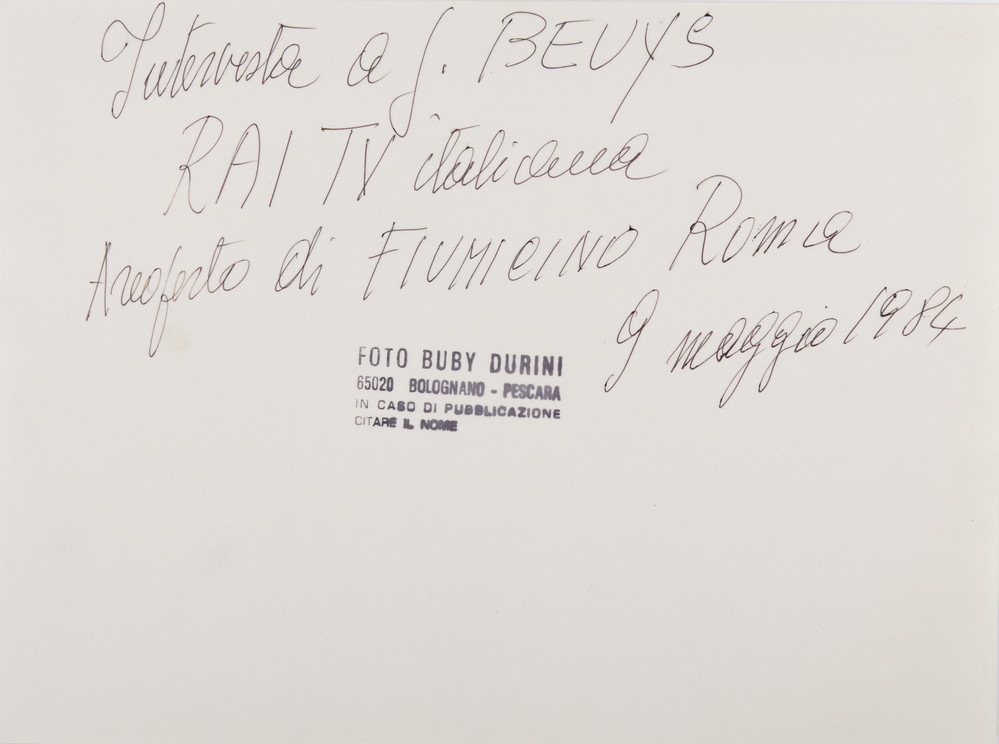 Intervista a J. BEUYS
RAI TV italiana
Areoporto di FIUMICINO Roma
9 maggio 1984
FOTO BUBY DURINI
65020 BOLOGNANO - PESCARA
IN CASO DI PUBBLICAZIONE
CITARE IL NOME